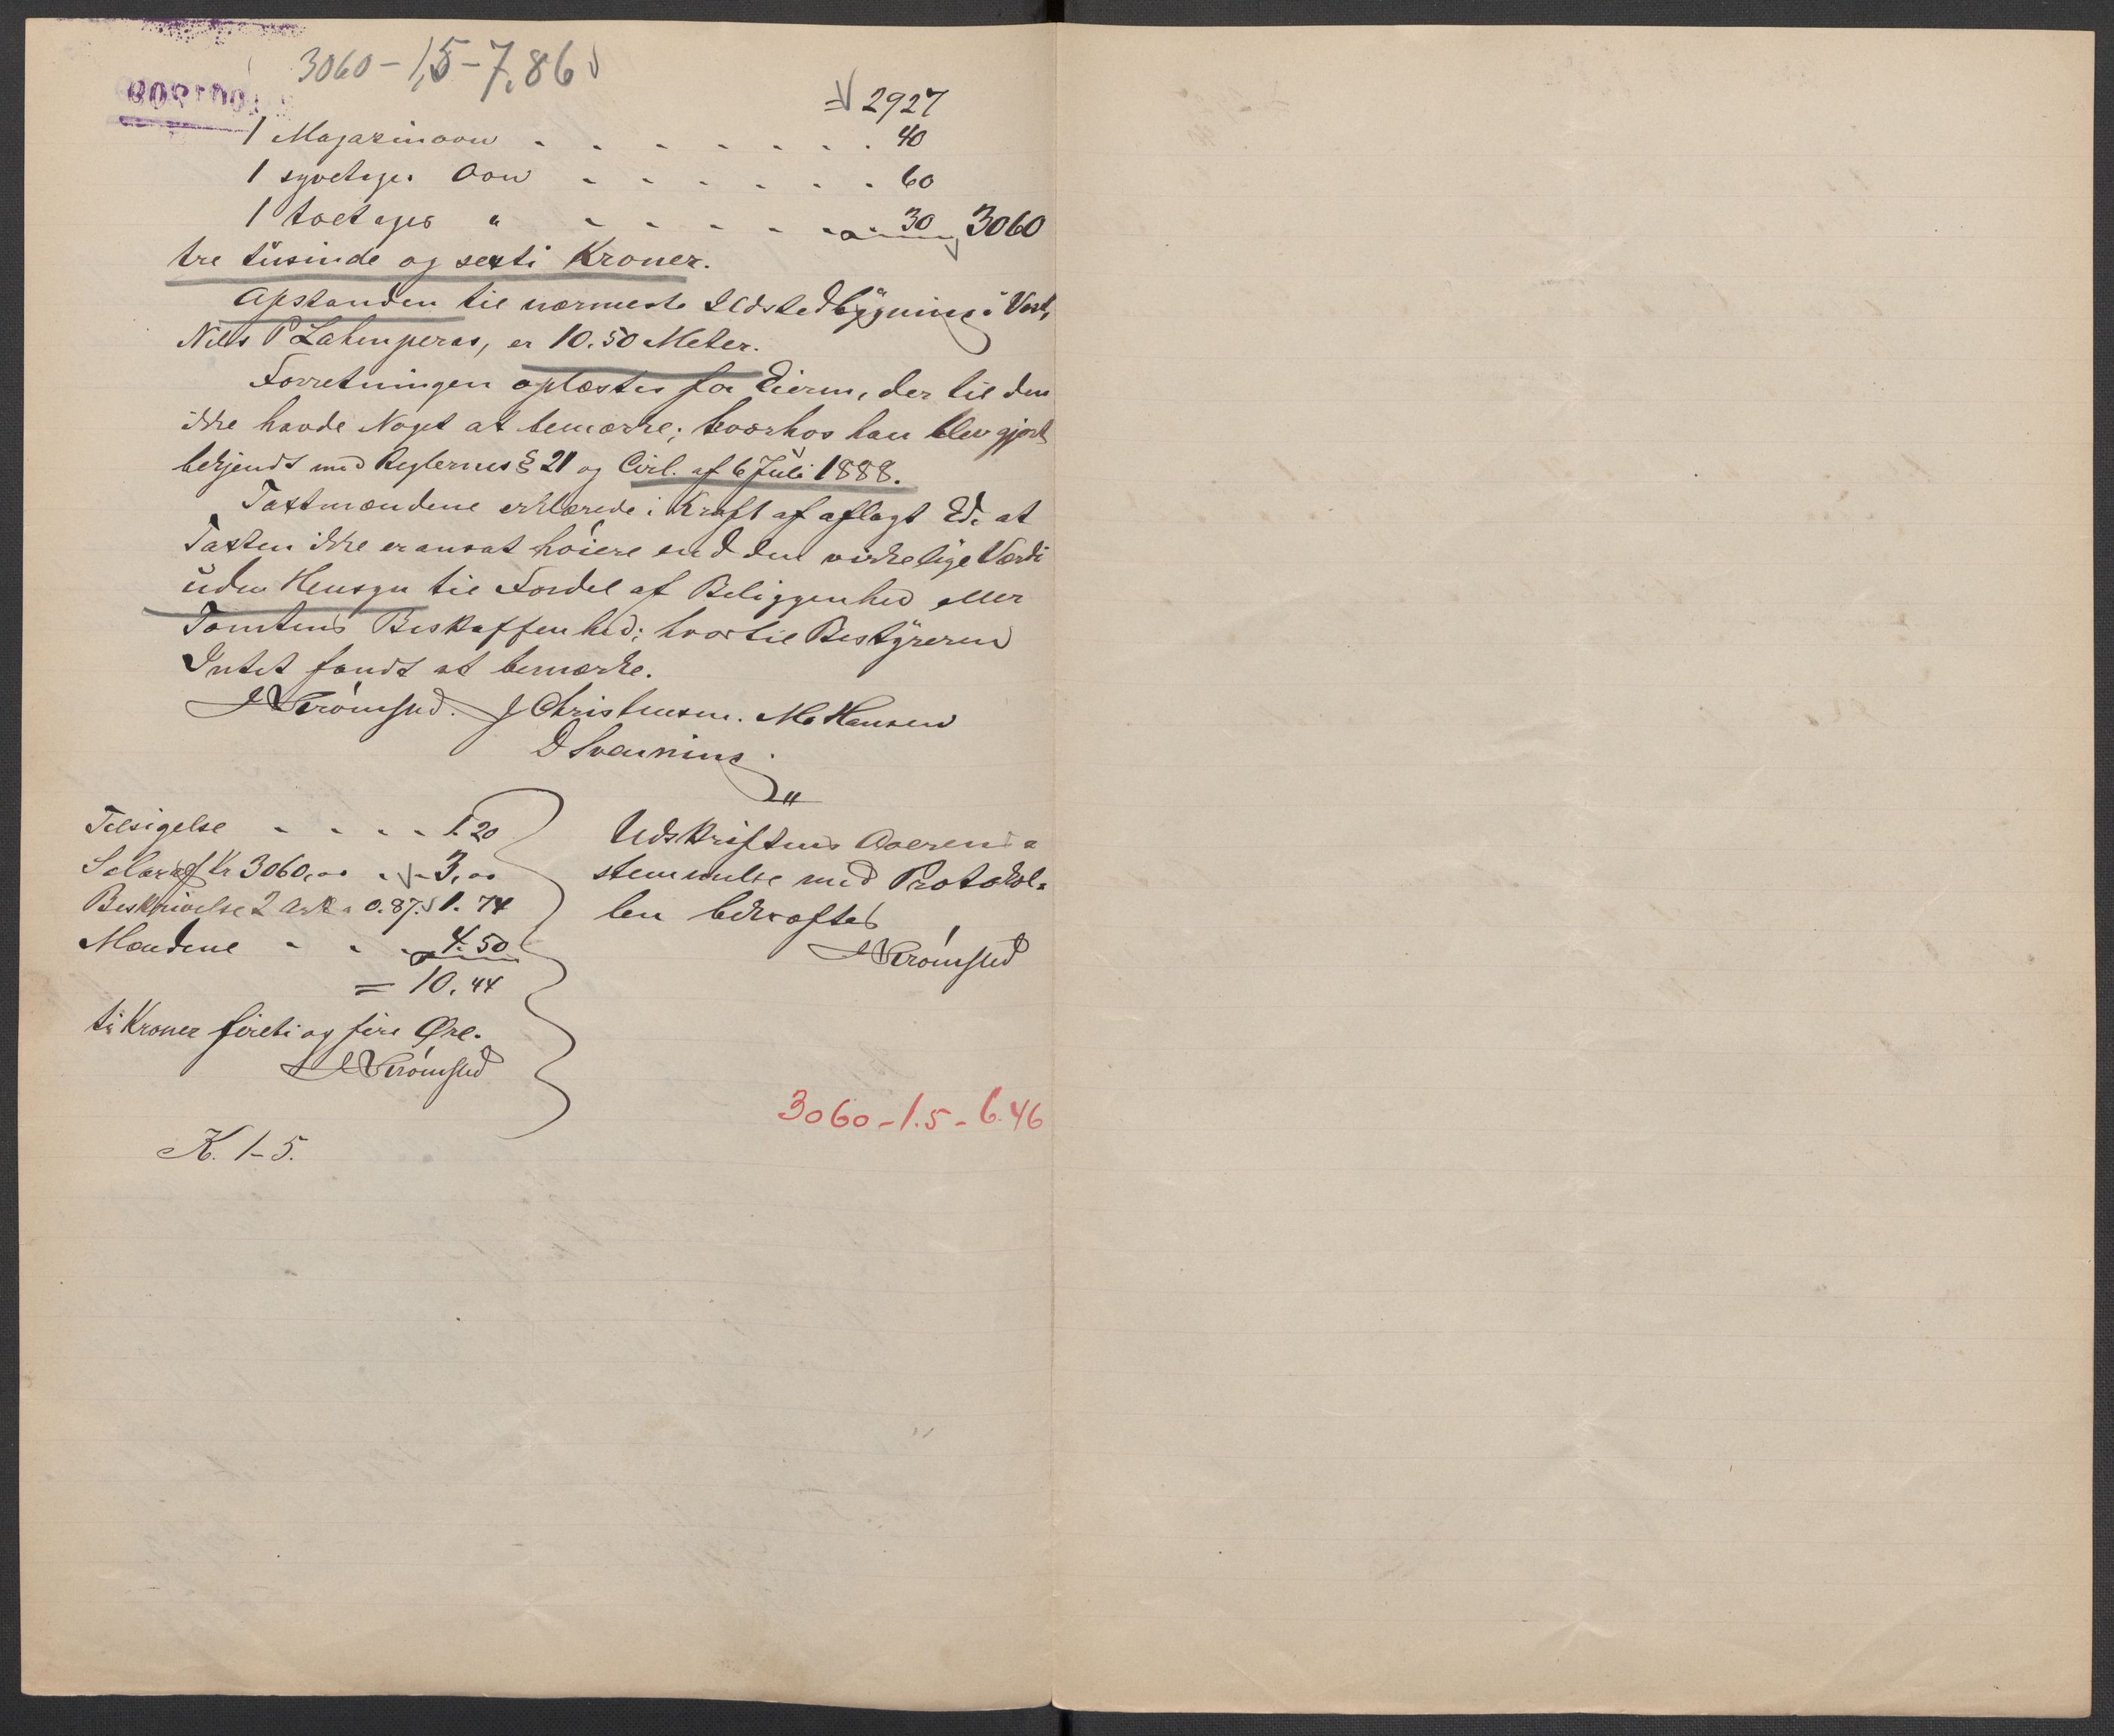 3060 - 1,5 - 7,86
= 2927
1 Magazinovn - - - - - - - - 40
1 syvetages Ovn - - - - - - 60
1 toetages " - - - - - - 30 3060
tre tusinde og sexti Kroner.
Afstanden til nærmeste Ildstedbygning i Vest,
Nils P Lakenperas, er 10.50 Meter.
Forretningen oplæstes for Eieren, der til den
ikke havde Noget at bemærke; hvorhos han blev gjort
bekjendt med Reglernes § 21 og Circl. af 6 Juli 1888.
Taxtmændene erklærede i Kraft af aflagt Ed, at
Taxten ikke er ansat høiere end den virkelige Værdi
uden Hensyn til Fordel af Beliggenhed eller
Tomtens Beskaffenhed; hvortil Bestyreren
Intet fandt at bemærke.
J Christensen. M. Hansen
D Svenning.
Tilsigelse - - - - 1.20
Salær af Kr 3060,00 - - 3,00
Beskrivelse 2 Ark a 0.87. 1.74
Mændene - - - 4.50
= 10.44
ti Kroner fireti og fire Øre.
Udskriftens Overens=
stemmelse med Protokol=
len bekræftes
3060 - 1.5 - 6.46
K. 1-5.